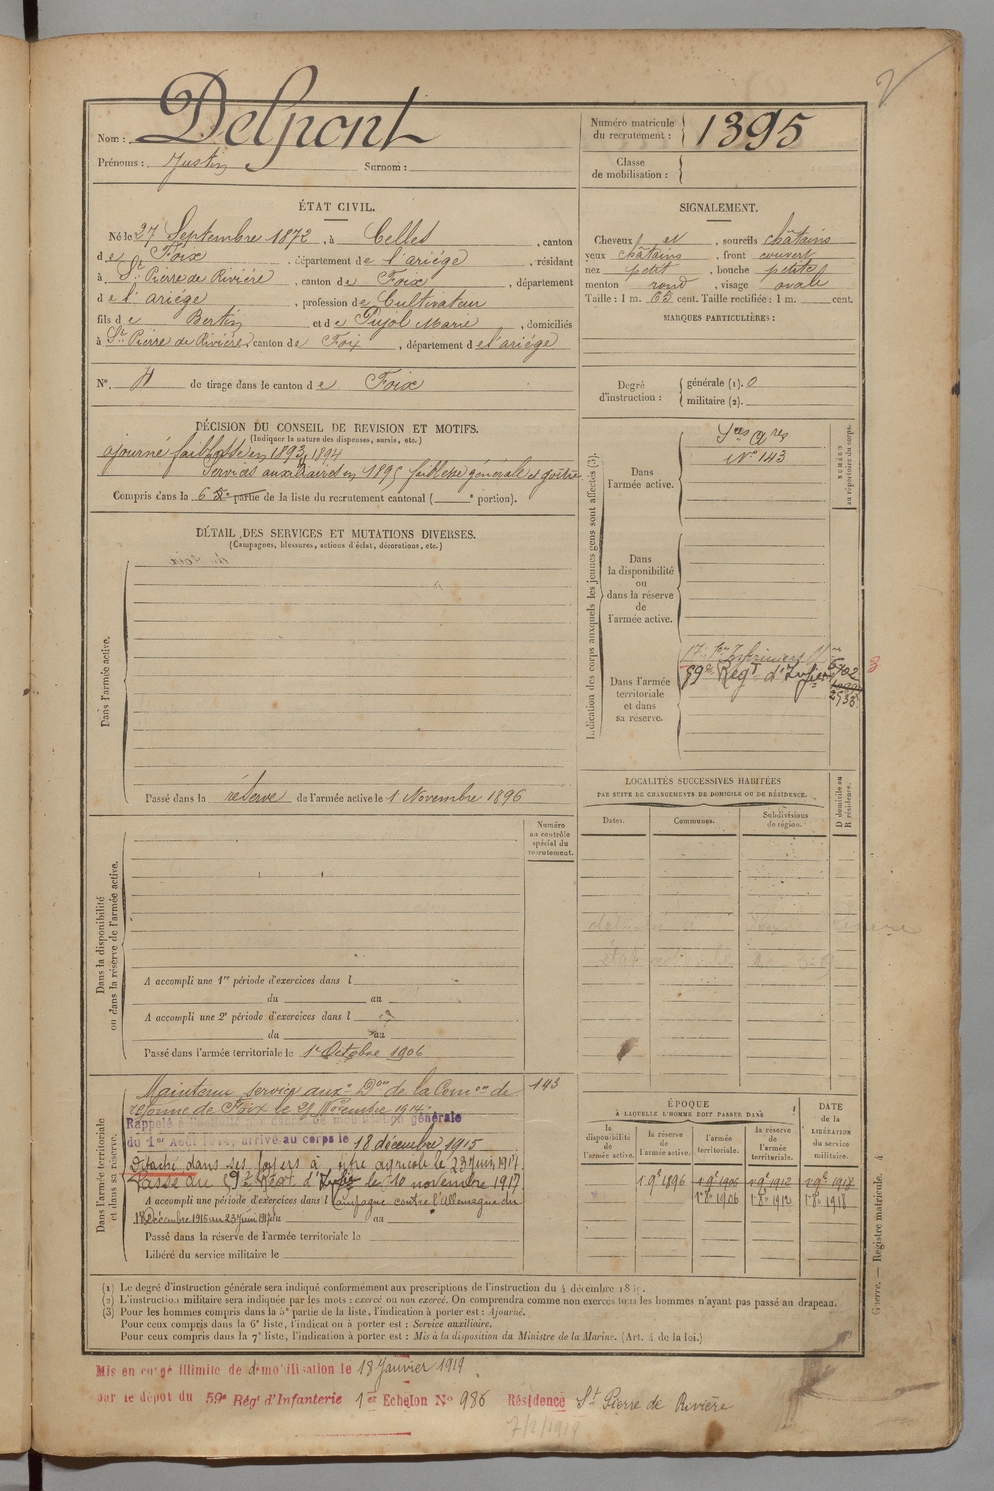 Nom : Delpont
Prénoms : Justin Surnom :
Numéro matricule du recrutement : 1395
Classe de mobilisation :
ÉTAT CIVIL.
Né le 27 Septembre 1872, à Celles, canton
de Foix, département de l'ariége, résidant
à St Pierre de Riviére, canton de Foix, département
de l'ariége, profession de Cultivateur
fils de Bertin et de Pujol Marie, domiciliés
à St Pierre de Riviére, canton de Foix, département de l'ariége
N° de tirage dans le canton de Foix
SIGNALEMENT.
Cheveux et, sourcils châtains
yeux châtains, front couvert
nez petit, bouche petite
menton rond, visage ovale
Taille : 1 m. 65 cent. Taille rectifiée : 1 m. cent.
MARQUES PARTICULIÈRES :
Degré d'instruction : générale (1). 0
militaire (2).
DÉCISION DU CONSEIL DE REVISION ET MOTIFS.
(Indiquer la nature des dispenses, sursis, etc.)
ajourné faiblesse en 1893, 1894
Services auxiliaires en 1895 faiblesse générale et goître
Compris dans la 6e partie de la liste du recrutement cantonal ( e portion).
DÉTAIL DES SERVICES ET MUTATIONS DIVERSES.
(Campagnes, blessures, actions d'éclat, décorations, etc.)
Dans l'armée active.
Passé dans la réserve de l'armée active le 1 Novembre 1896
Indication des corps auxquels les jeunes gens sont affectés (3).
NUMÉRO au répertoire du corps.
Dans l'armée active.
Ses Ares
N° 143
Dans la disponibilité ou dans la réserve de l'armée active.
Dans l'armée territoriale et dans sa réserve.
17e Son Infirmiers
59e Régt d'Infie
LOCALITÉS SUCCESSIVES HABITÉES
PAR SUITE DE CHANGEMENTS DE DOMICILE OU DE RÉSIDENCE.
Dates. Communes. Subdivisions de région. D domicile ou R résidence.
Dans la disponibilité ou dans la réserve de l'armée active.
Numéro au contrôle spécial du recrutement.
A accompli une 1re période d'exercices dans l
du au
A accompli une 2e période d'exercices dans l
du au
Passé dans l'armée territoriale le 1er Octobre 1906
Dans l'armée territoriale et dans sa réserve.
Maintenu service auxre Don de la Comon de 143
réforme de Foix le 25 Novembre 1914.
Rappelé à l'activité par décret de mobilisation générale
du 1er Août 1914, arrivé au corps le 18 décembre 1915
Détaché dans ses foyers à titre agricole le 23 Juin 1917.
Passé au 59e Régt d'Infie le 10 novembre 1917
A accompli une période d'exercices dans l Campagne contre l'Allemagne du
18 Décembre 1915 au 23 Juin 1917 du au
Passé dans la réserve de l'armée territoriale le
Libéré du service militaire le
ÉPOQUE
À LAQUELLE L'HOMME DOIT PASSER DANS
DATE de la LIBÉRATION du service militaire.
la disponibilité de l'armée active. la réserve de l'armée active. l'armée territoriale. la réserve de l'armée territoriale.
1 9e 1896 1 9e 1906 1 9e 1912 1 9e 1918
1er 8e 1906 1er 8e 1912 1er 8e 1918
(1) Le degré d'instruction générale sera indiqué conformément aux prescriptions de l'instruction du 4 décembre
(2) L'instruction militaire sera indiquée par les mots : exercé ou non exercé. On comprendra comme non exercés tous les hommes n'ayant pas passé au drapeau.
(3) Pour les hommes compris dans la 5e partie de la liste, l'indication à porter est : Ajourné.
Pour ceux compris dans la 6e liste, l'indication à porter est : Service auxiliaire.
Pour ceux compris dans la 7e liste, l'indication à porter est : Mis à la disposition du Ministre de la Marine. (Art. 4 de la loi.)
Guerre. — Registre matricule. 4
Mis en congé illimité de démobilisation le 18 Janvier 1919
par le dépôt du 59e Régt d'Infanterie 1er Echelon N° 986 Résidence St Pierre de Rivière
7/2/1919